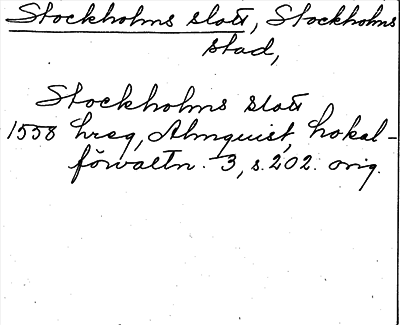 Stockholms slott, Stockholms
stad,
Stockholms slott
1558 hreg, Almquist, Lokal-
förvaltn. 3, s. 202. orig.